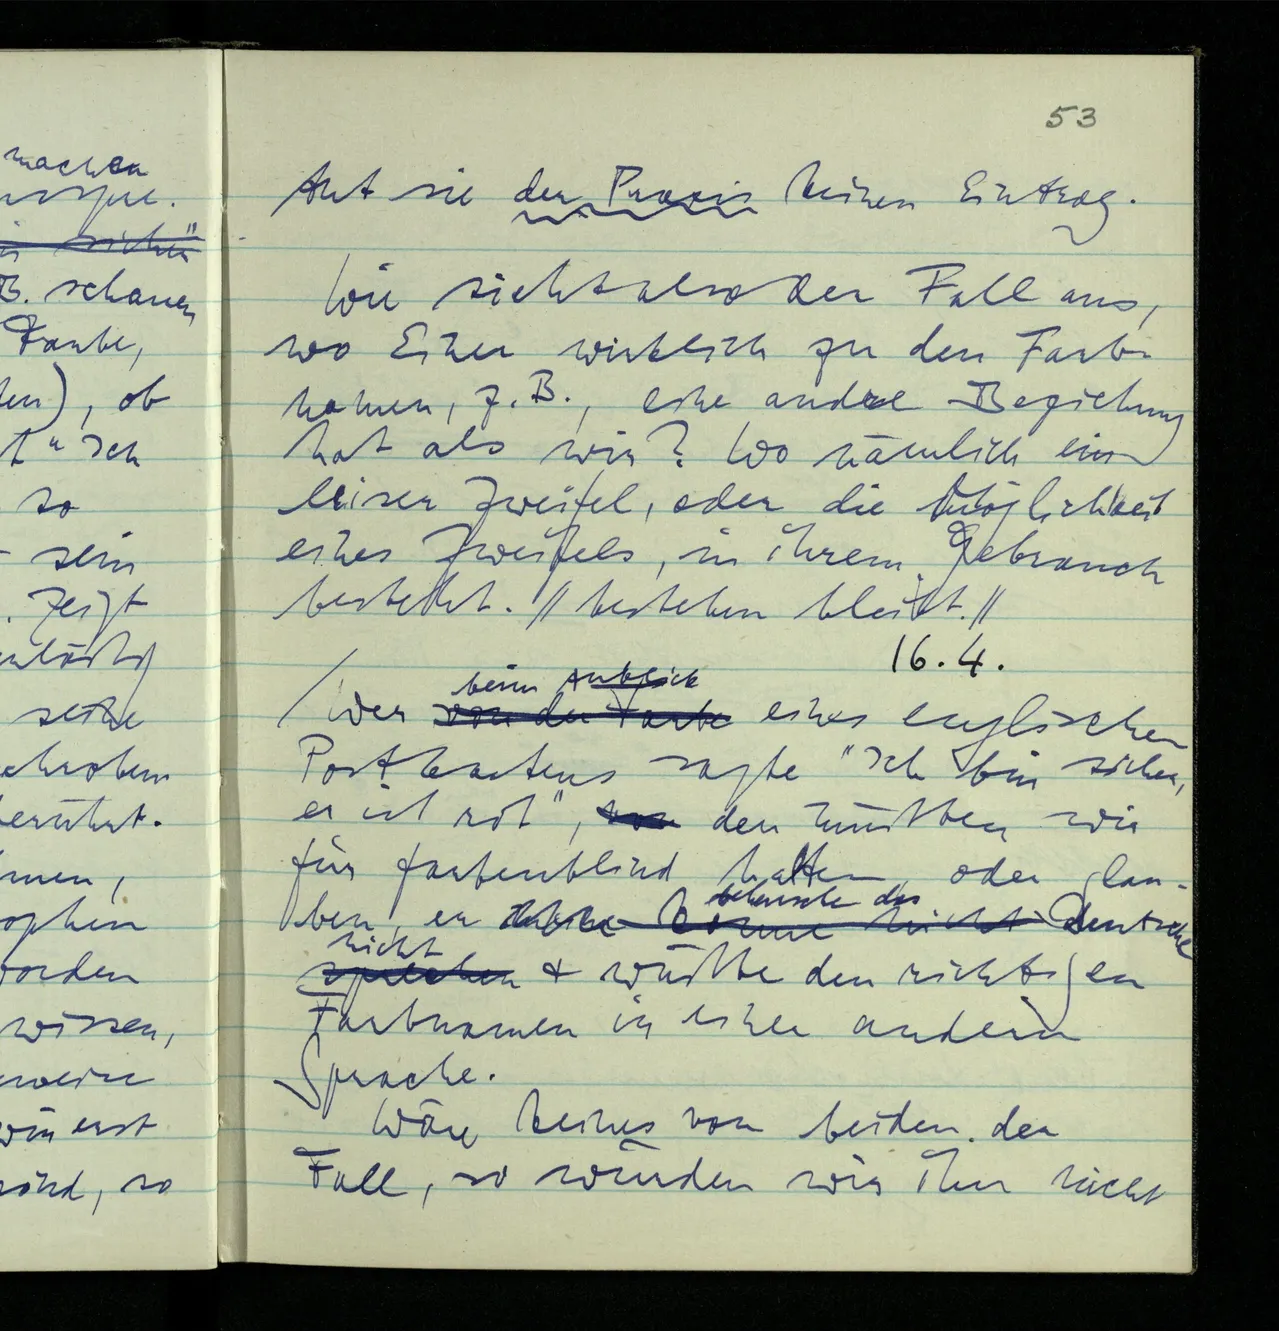 machen
B. schauen
Farbe,
ob
" Ich
so
sein
. zeigt
seine
berührt.
worden
wissen,
wir erst
sind, so
53
tut sie der Praxis keinen Eintrag.
Wie sieht also der Fall aus,
wo Einer wirklich zu den Farb-
namen, z.B., eine andre Beziehung
hat als wir? Wo nämlich ein
leiser Zweifel, oder die Möglichkeit
eines Zweifels, in ihrem Gebrauch
besteht. // bestehen bleibt. //
16.4.
beim Anblick
/ Wer von der Farbe eines englischen
Postkastens sagte "Ich bin sicher,
er ist rot", den müßten wir
für farbenblind halten, oder glau-
beherrsche das
ben, er könne nicht Deutsche
nicht
sprechen & wüßte den richtigen
Farbnamen in einer andern
Sprache.
Wäre keines von beiden der
Fall, so würden wir ihn nicht